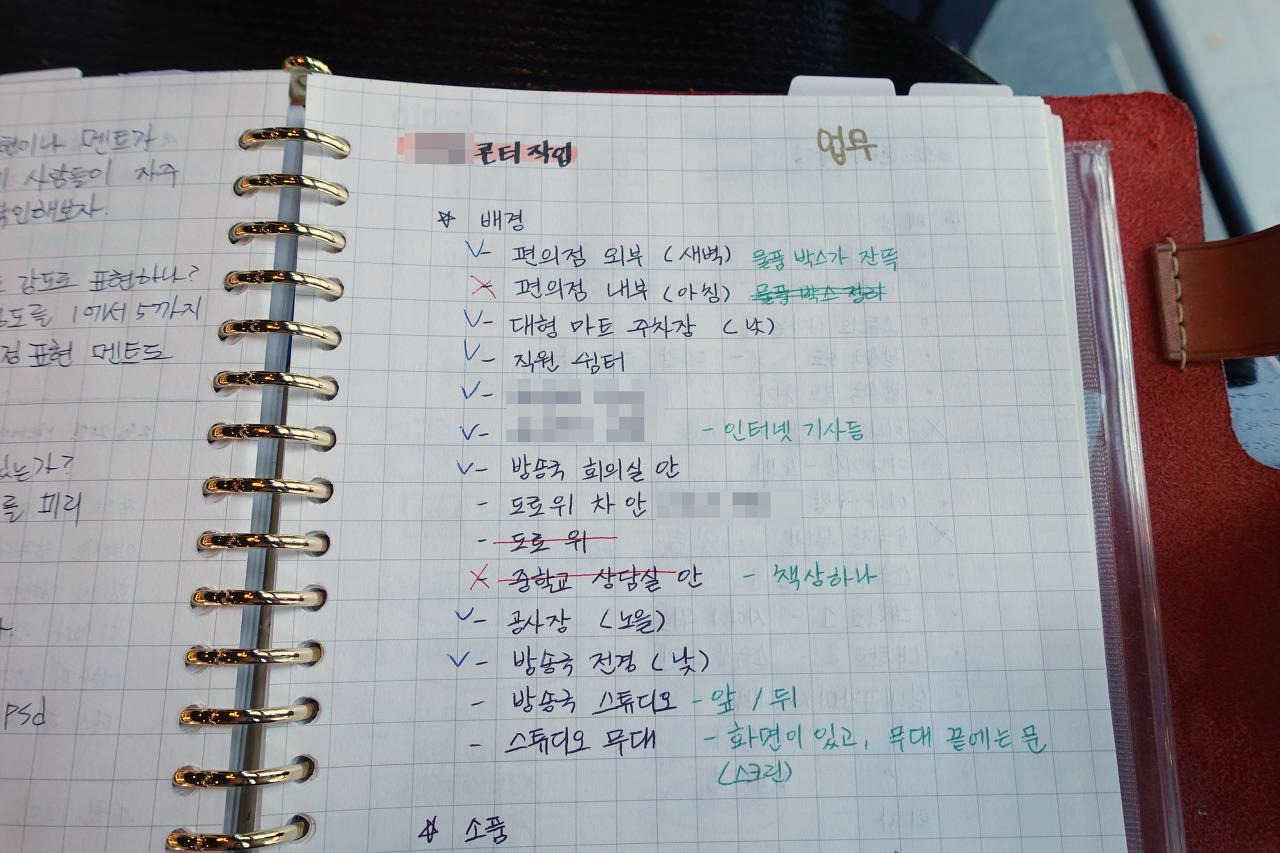 멘트가
사람들이 자주
확인해보자.
강도로 표현하나?
1에서 5까지
표현 멘트도
있는가?
를 피리
psd
콘티 작업
업무
☆ 배경
✓- 편의점 외부 (새벽) 물품 박스가 잔뜩
✗- 편의점 내부 (아침) 물품 박스 정리
✓- 대형 마트 주차장 (낮)
✓- 직원 쉼터
✓-
✓- - 인터넷 기사등
✓- 방송국 회의실 안
- 도로위 차 안
- 도로 위
✗- 중학교 상담실 안 - 책상하나
✓- 공사장 (노을)
✓- 방송국 전경 (낮)
- 방송국 스튜디오 - 앞 / 뒤
- 스튜디오 무대 - 화면이 있고, 무대 끝에는 문
(스크린)
☆ 소품